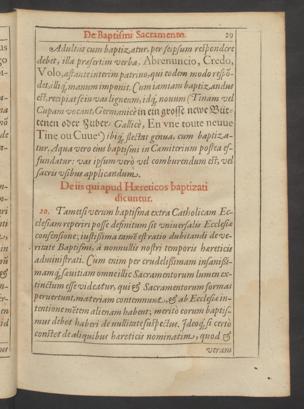 De Baptismi Sacramento. 29
Adultus cum baptizatur, per seipsum respondere
debet, illa præsertim verba, Abrenuncio, Credo,
Volo, astante interim patrino, qui eodem modo respō-
det, illiq́; manum imponit. Cum iam iam baptizandus
est, recipiat se in vas ligneum, idq́; novum (Tinam vel
Cupam vocant, Germanicè in ein grosse newe Büt-
tenen oder Zuber. Gallicè, En vne toute neuue
Tine ou Cuue) ibiq́; flectat genua, cum baptiza-
tur, Aqua vero eius baptismi in Cœmiterium postea ef-
fundatur: vas ipsum verò vel comburendum est, vel
sacris vsibus applicandum.
De iis qui apud Hæreticos baptizati
dicuntur.
20. Tametsi verum baptisma extra Catholicam Ec-
clesiam reperiri posse definitum sit vniversalis Ecclesiæ
consensione; iustissima tamē est ratio dubitandi de ve-
ritate Baptismi, à nonnullis nostri temporis hæreticis
administrati. Cum enim per crudelissimam insanissi-
mamq́; sævitiam omne illic Sacramentorum lumen ex-
tinctum esse videatur, qui & Sacramentorum formas
pervertunt, materiam contemnunt, & ab Ecclesiæ in-
tentione mētem alienam habent; meritò eorum baptis-
mus debet haberi de nullitate suspectus. Ideoq́; si certò
constet de aliquibus hæreticis nominatim, quod &
veram